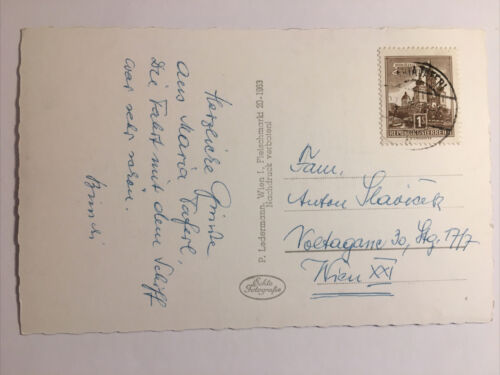 Herzliche Grüße
aus Maria Taferl,
Die Fahrt mit dem Schiff
war sehr schön.
P. Ledermann, Wien I., Fleischmarkt 20 - 1963
Nachdruck verboten!
Echte
Fotografie
REPUBLIK ÖSTERREICH
1S
Fam.
Anton Slavicek
Voltagasse 30, Stg. 17/7
Wien XXI